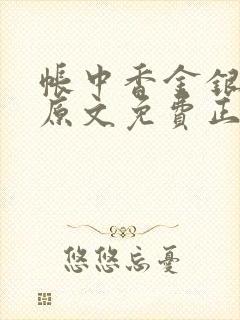 帐中香金银
原文免費正
悠悠忘憂